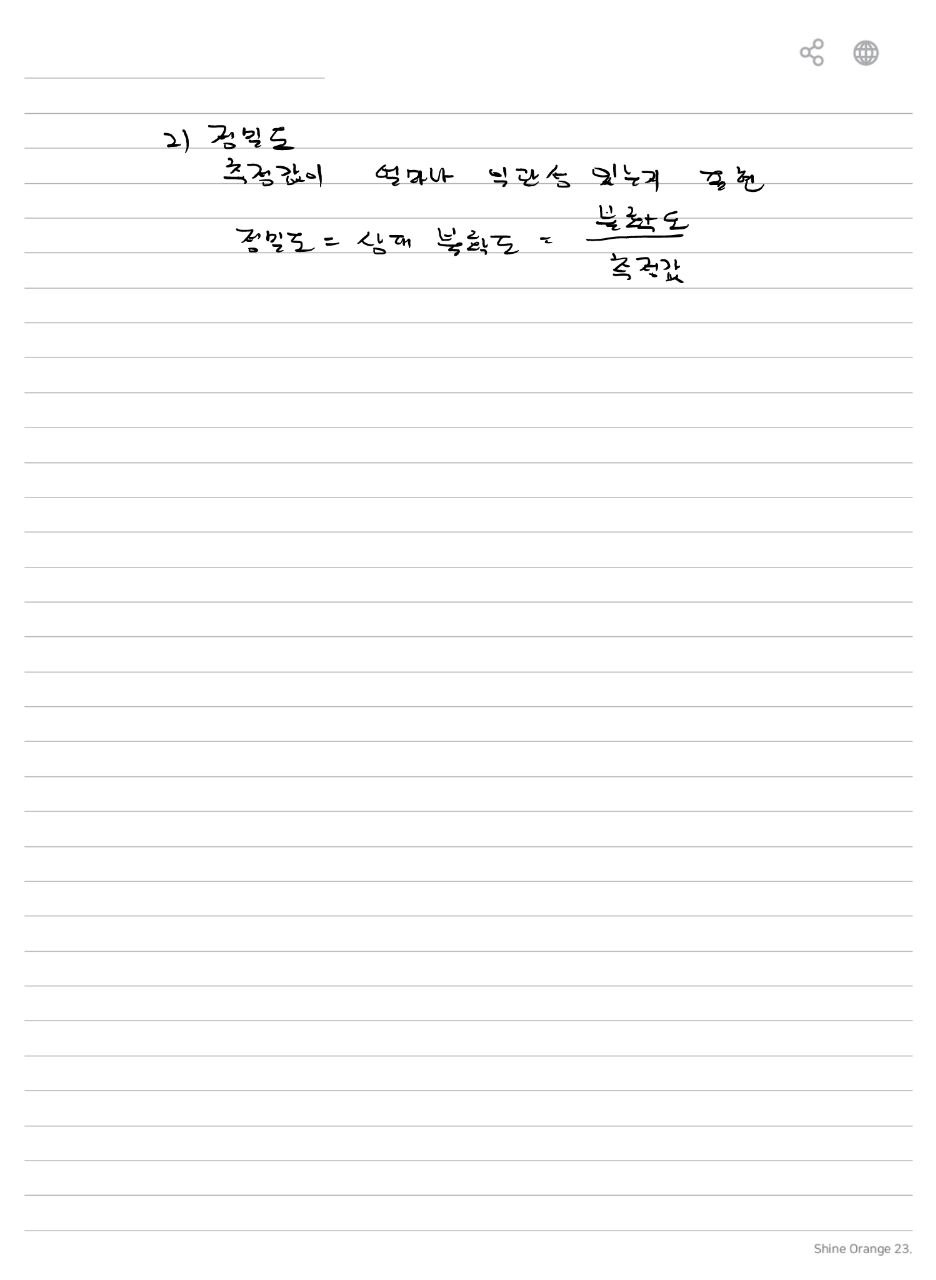 2) 정밀도
측정값이 얼마나 일관성 있는지 표현
정밀도 = 상대 불확도 = 불확도 / 측정값
Shine Orange 23.